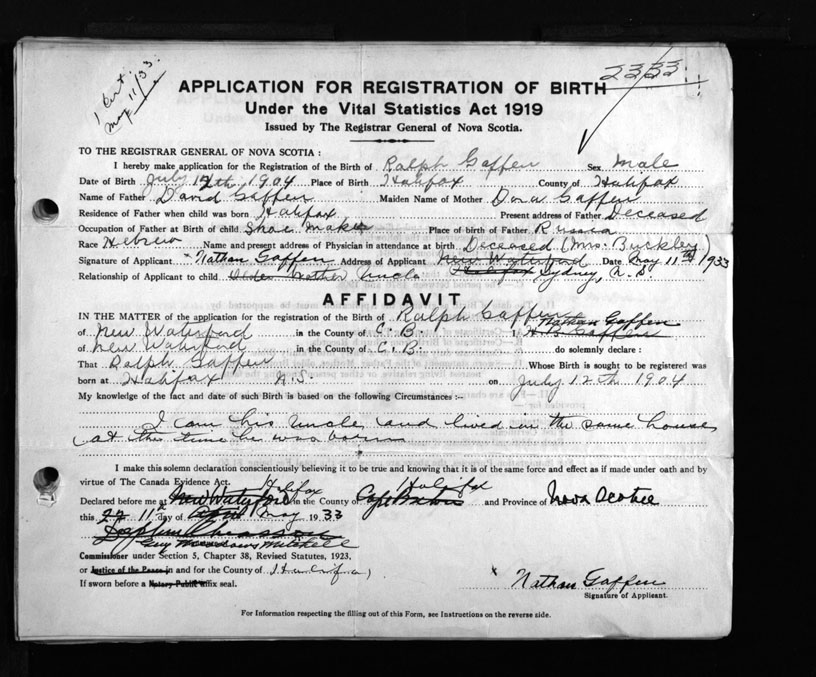 1 Cert
May 11/33
2333
APPLICATION FOR REGISTRATION OF BIRTH
Under the Vital Statistics Act 1919
Issued by The Registrar General of Nova Scotia.
TO THE REGISTRAR GENERAL OF NOVA SCOTIA :
I hereby make application for the Registration of the Birth of Ralph Gaffen Sex Male
Date of Birth July 12th, 1904 Place of Birth Halifax County of Halifax
Name of Father David Gaffen Maiden Name of Mother Dora Gaffen
Residence of Father when child was born Halifax Present address of Father Deceased
Occupation of Father at Birth of child Shoe Maker Place of birth of Father Russia
Race Hebrew Name and present address of Physician in attendance at birth Deceased (Mrs. Buckley)
Signature of Applicant Nathan Gaffen Address of Applicant New Waterford Date May 11th 1933
Relationship of Applicant to child Older Brother Uncle Halifax Sydney, N.S.
AFFIDAVIT
IN THE MATTER of the application for the registration of the Birth of Ralph Gaffen
of New Waterford in the County of C.B. I, Nathan Gaffen
of New Waterford in the County of C.B. do solemnly declare :
That Ralph Gaffen Whose Birth is sought to be registered was
born at Halifax N.S. on July 12th 1904
My knowledge of the fact and date of such Birth is based on the following Circumstances :-
I am his Uncle, and lived in the same house,
at the time he was born
I make this solemn declaration conscientiously believing it to be true and knowing that it is of the same force and effect as if made under oath and by
virtue of The Canada Evidence Act.
Declared before me at New Waterford Halifax in the County of Cape Breton Halifax and Province of Nova Scotia
this 27 11th day of April May 1933
Guy Meadows Mitchell
Commissioner under Section 5, Chapter 38, Revised Statutes, 1923,
or Justice of the Peace in and for the County of Halifax
If sworn before a Notary Public affix seal.
Nathan Gaffen
Signature of Applicant.
For Information respecting the filling out of this Form, see Instructions on the reverse side.